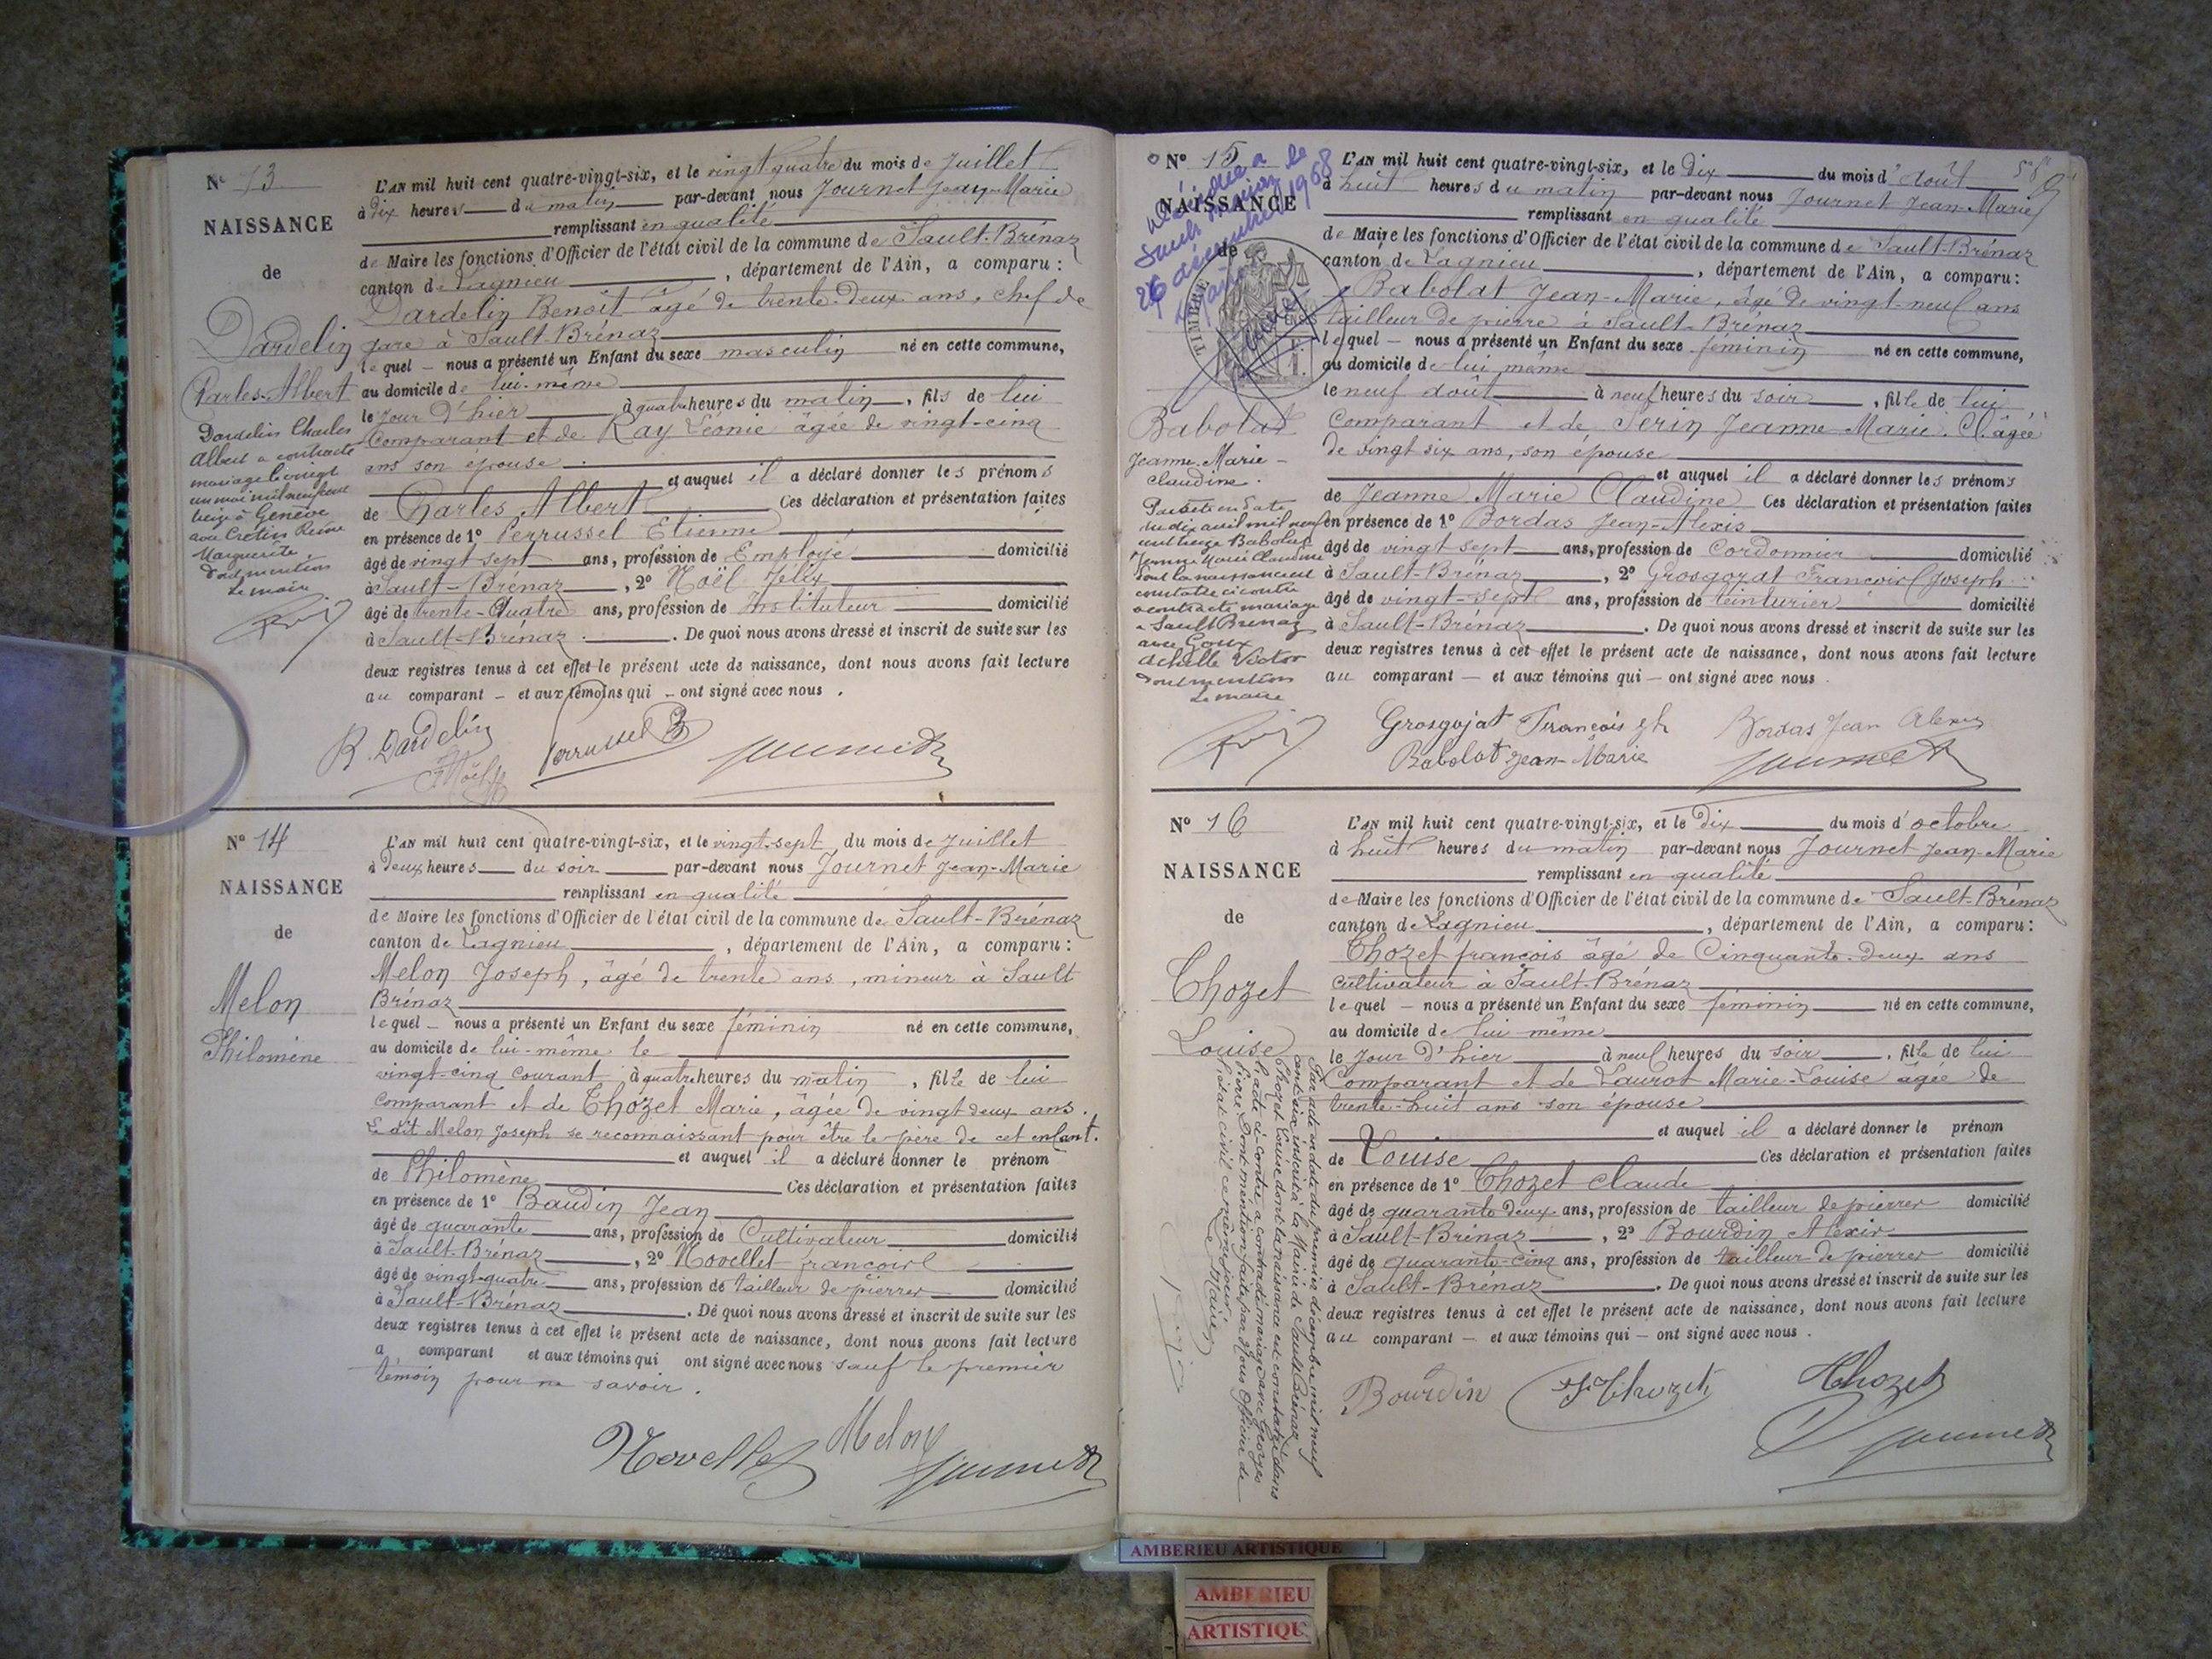 N° 13
NAISSANCE
de
Dardelin
Charles-Albert
Dardelin Charles
Albert a contracté
mariage le vingt
un mai mil neuf cent
treize à Genève
avec Crétin Reine
Marguerite.
Dont mention
Le maire
L'AN mil huit cent quatre-vingt-six, et le vingt quatre du mois de Juillet
à Dix heures du matin par-devant nous Journet Jean-Marie
remplissant en qualité
de Maire les fonctions d'Officier de l'état civil de la commune de Sault-Brénaz
canton de Lagnieu, département de l'Ain, a comparu :
Dardelin Benoit âgé de trente-deux ans, chef de
gare à Sault-Brénaz
lequel – nous a présenté un Enfant du sexe masculin né en cette commune,
au domicile de lui-même
le jour d'hier à quatre heures du matin, fils de lui
Comparant et de Ray Léonie âgée de vingt-cinq
ans son épouse
et auquel il a déclaré donner les prénoms
de Charles Albert Ces déclaration et présentation faites
en présence de 1° Perrussel Etienne
âgé de vingt sept ans, profession de Employé domicilié
à Sault-Brénaz, 2° Noël Félix
âgé de trente-Quatre ans, profession de Instituteur domicilié
à Sault-Brénaz. De quoi nous avons dressé et inscrit de suite sur les
deux registres tenus à cet effet le présent acte de naissance, dont nous avons fait lecture
au comparant – et aux témoins qui – ont signé avec nous.
B. Dardelin Perrussel Journet
Noël
N° 14
NAISSANCE
de
Melon
Philomène
L'AN mil huit cent quatre-vingt-six, et le vingt-sept du mois de Juillet
à Deux heures du soir par-devant nous Journet Jean-Marie
remplissant en qualité
de Maire les fonctions d'Officier de l'état civil de la commune de Sault-Brénaz
canton de Lagnieu, département de l'Ain, a comparu :
Melon Joseph, âgé de trente ans, mineur à Sault
Brénaz
lequel – nous a présenté un Enfant du sexe féminin né en cette commune,
au domicile de lui-même le
vingt-cinq courant à quatre heures du matin, fille de lui
Comparant et de Chozet Marie, âgée de vingt deux ans.
Le dit Melon Joseph se reconnaissant pour être le père de cet enfant.
et auquel il a déclaré donner le prénom
de Philomène Ces déclaration et présentation faites
en présence de 1° Baudin Jean
âgé de quarante ans, profession de Cultivateur domicilié
à Sault-Brénaz, 2° Novellet françois
âgé de vingt-quatre ans, profession de tailleur de pierres domicilié
à Sault-Brénaz. De quoi nous avons dressé et inscrit de suite sur les
deux registres tenus à cet effet le présent acte de naissance, dont nous avons fait lecture
a comparant et aux témoins qui ont signé avec nous sauf le premier
témoin pour ne savoir.
Novellet Melon Journet
N° 15
Décédée à
Sault
le
26 décembre 1968
NAISSANCE
de
TIMBRE
Babolat
Jeanne-Marie-
Claudine.
Par acte en date
du dix avril mil neuf
cent treize Babolat
Jeanne Marie Claudine
dont la naissance est
constatée ci contre
a contracté mariage
à Sault Brénaz
avec Goux
Achille Victor
dont mention
Le maire
L'AN mil huit cent quatre-vingt-six, et le Dix du mois d'Août 58
à huit heures du matin par-devant nous Journet Jean-Marie
remplissant en qualité
de Maire les fonctions d'Officier de l'état civil de la commune de Sault-Brénaz
canton de Lagnieu, département de l'Ain, a comparu :
Babolat Jean-Marie, âgé de vingt-neuf ans
tailleur de pierre à Sault-Brénaz
lequel – nous a présenté un Enfant du sexe féminin né en cette commune,
au domicile de lui même
le neuf août à neuf heures du soir, fille de lui
Comparant et de Serin Jeanne Marie. Cl. âgée
de vingt six ans, son épouse
et auquel il a déclaré donner les prénoms
de Jeanne Marie Claudine Ces déclaration et présentation faites
en présence de 1° Bordas Jean-Alexis
âgé de vingt sept ans, profession de Cordonnier domicilié
à Sault-Brénaz, 2° Grosgojat François Joseph
âgé de vingt-sept ans, profession de teinturier domicilié
à Sault-Brénaz. De quoi nous avons dressé et inscrit de suite sur les
deux registres tenus à cet effet le présent acte de naissance, dont nous avons fait lecture
au comparant – et aux témoins qui – ont signé avec nous.
Grosgojat François jh Bordas Jean Alexis
Babolat Jean-Marie Journet
N° 16
NAISSANCE
de
Chozet
Louise
Par acte en date du premier décembre mil neuf
cent six inscrit à la Mairie de Sault Brénaz
Chozet Louise dont la naissance est constatée dans
l'acte ci-contre a contracté mariage avec Georges
Pierre Dont mention faite par Nous Officier de
l'état civil ce même jour.
Le Maire,
L'AN mil huit cent quatre-vingt-six, et le Dix du mois d'octobre
à huit heures du matin par-devant nous Journet Jean-Marie
remplissant en qualité
de Maire les fonctions d'Officier de l'état civil de la commune de Sault-Brénaz
canton de Lagnieu, département de l'Ain, a comparu :
Chozet françois âgé de Cinquante-deux ans
cultivateur à Sault-Brénaz
lequel – nous a présenté un Enfant du sexe féminin né en cette commune,
au domicile de lui même
le jour d'hier à neuf heures du soir, fille de lui
Comparant et de Laurot Marie-Louise âgée de
trente-huit ans son épouse
et auquel il a déclaré donner le prénom
de Louise Ces déclaration et présentation faites
en présence de 1° Chozet Claude
âgé de quarante deux ans, profession de tailleur de pierres domicilié
à Sault-Brénaz, 2° Bourdin Alexis
âgé de quarante-cinq ans, profession de tailleur de pierres domicilié
à Sault-Brénaz. De quoi nous avons dressé et inscrit de suite sur les
deux registres tenus à cet effet le présent acte de naissance, dont nous avons fait lecture
au comparant – et aux témoins qui – ont signé avec nous.
Bourdin Chozet Chozet
Journet
AMBERIEU ARTISTIQUE
AMBERIEU
ARTISTIQU